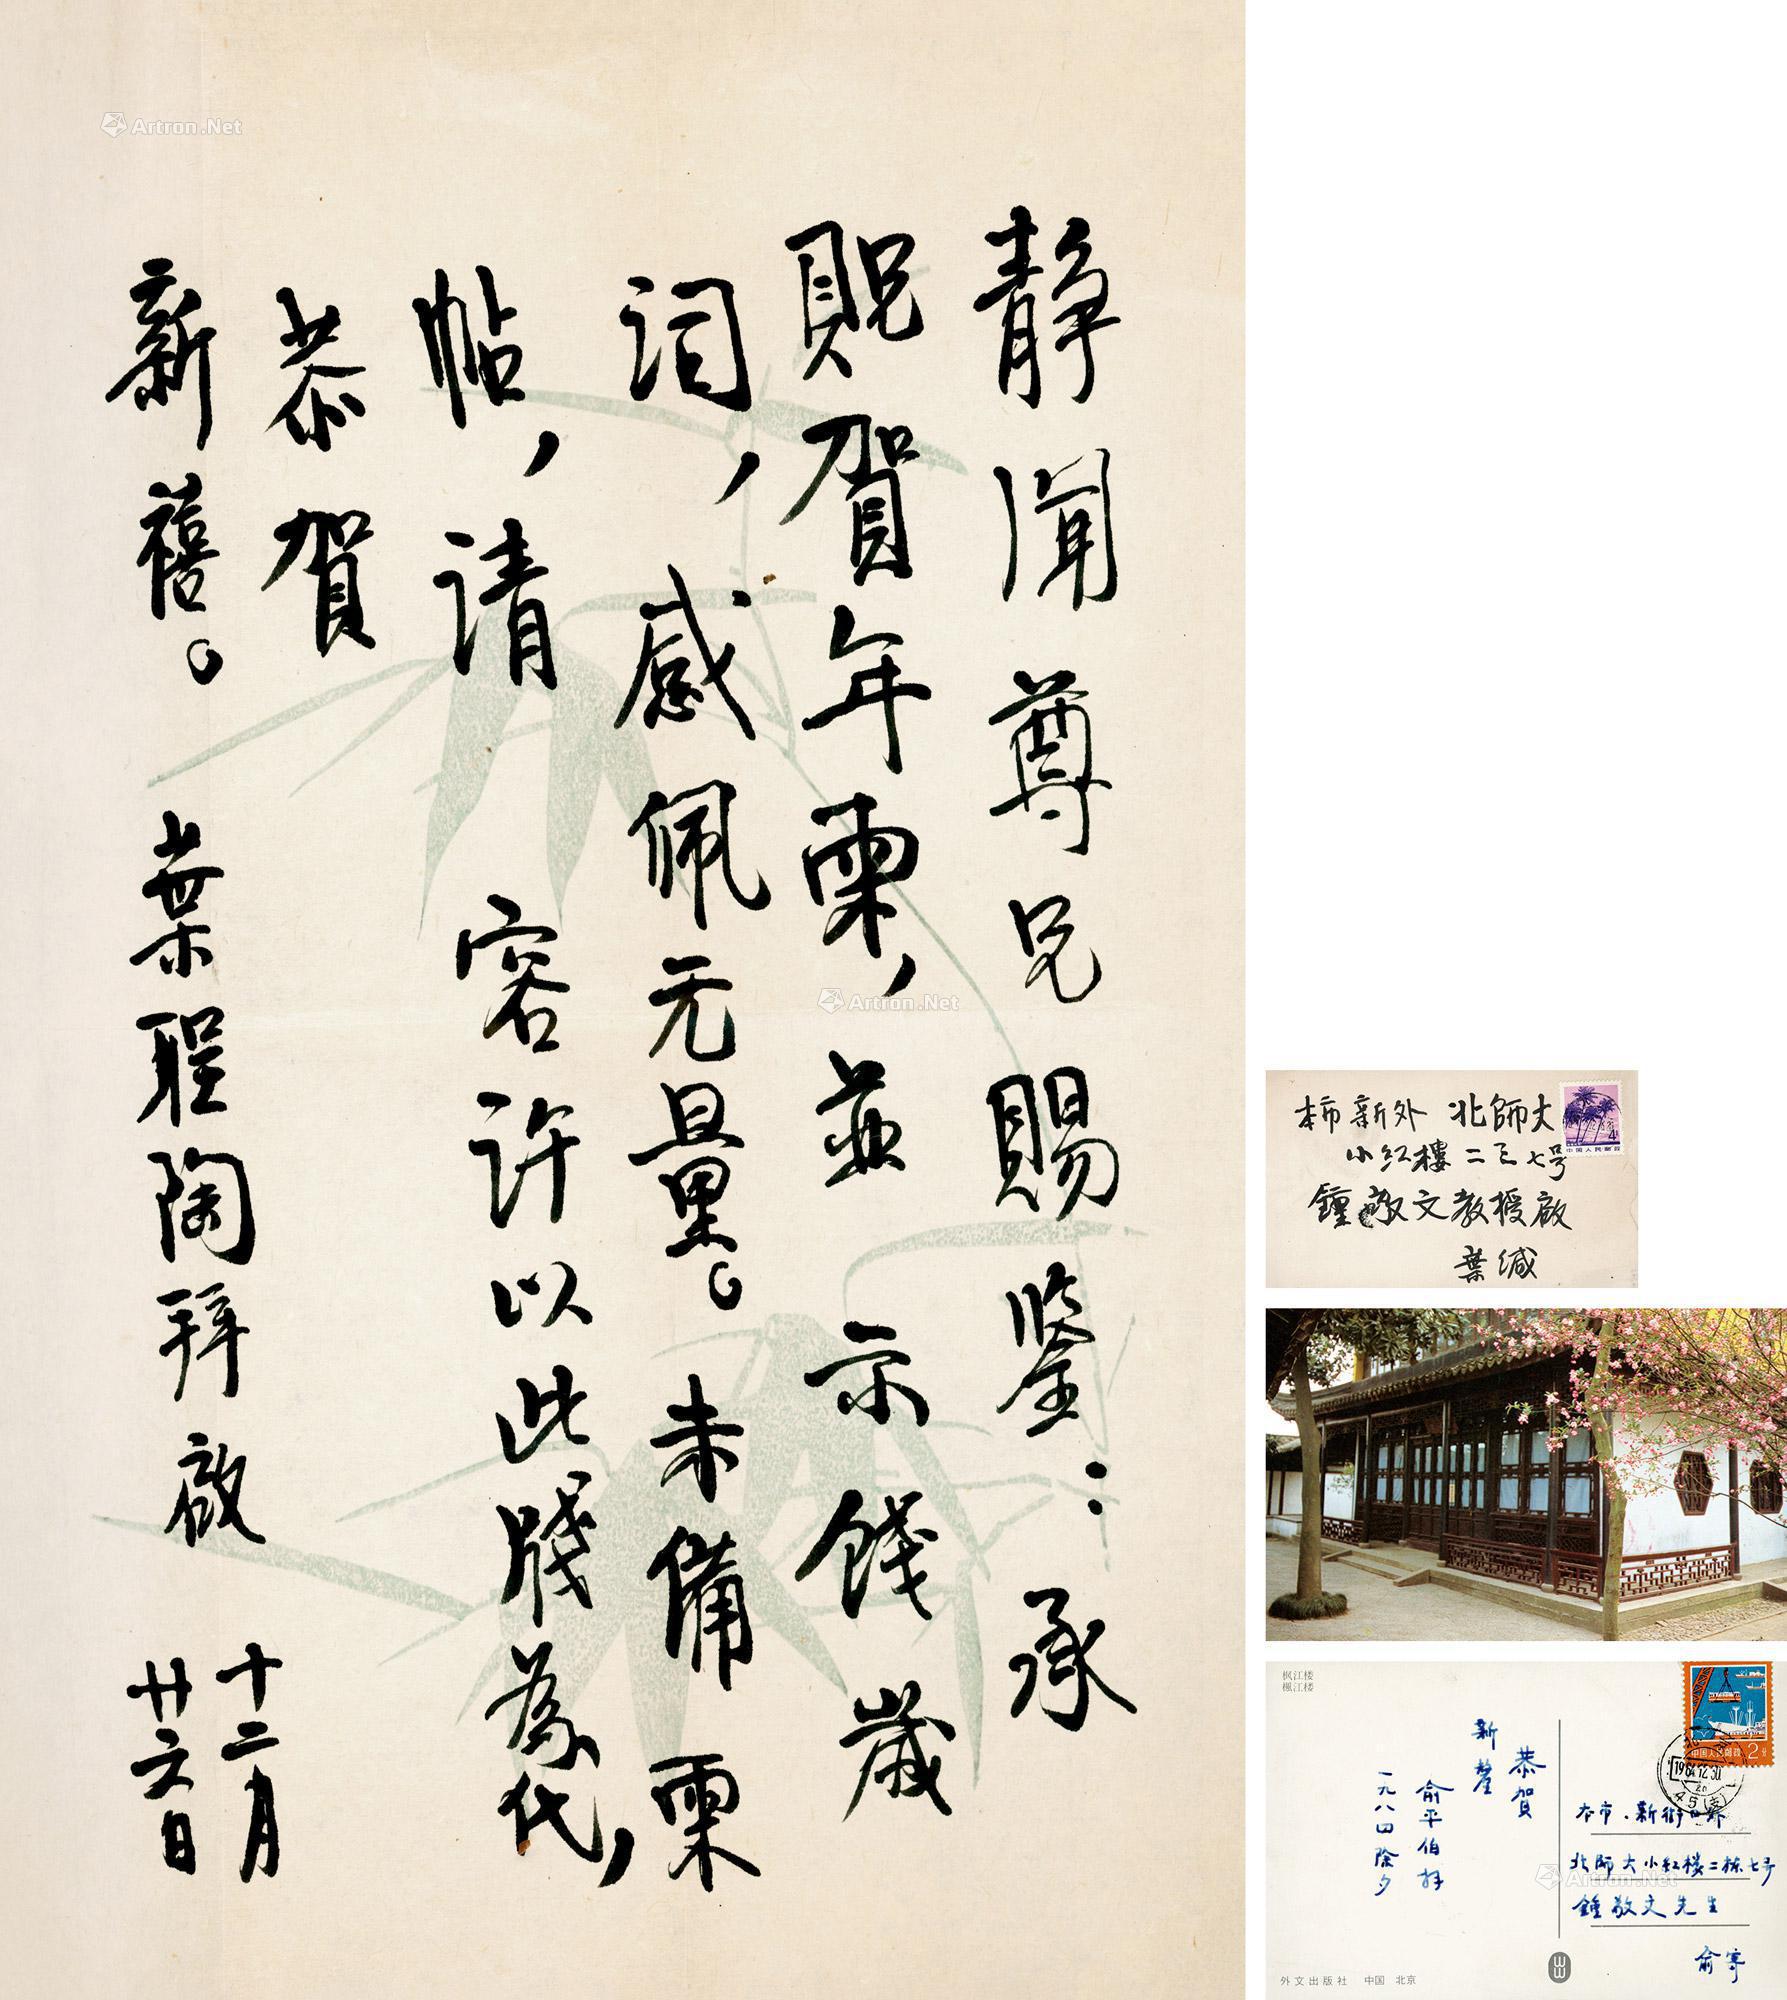 静闻尊兄赐鉴：承
贶贺年柬，並示餞歲
词，感佩无量。未備柬
帖，请容许以此牋為代，
恭贺
新禧。葉聖陶拜啟
十二月
廿六日
Artron.Net
Artron.Net
本市新外北師大
小红樓二之七号
鍾敬文教授啟
葉缄
4
中国人民邮政
枫江楼
楓江楼
恭贺
新釐
俞平伯拜
一九八四除夕
中国人民邮政 2分
1984.12.30
本市·新街口外
北师大小红楼二栋七号
鍾敬文先生
俞寄
Artron.Net
外文出版社 中国 北京